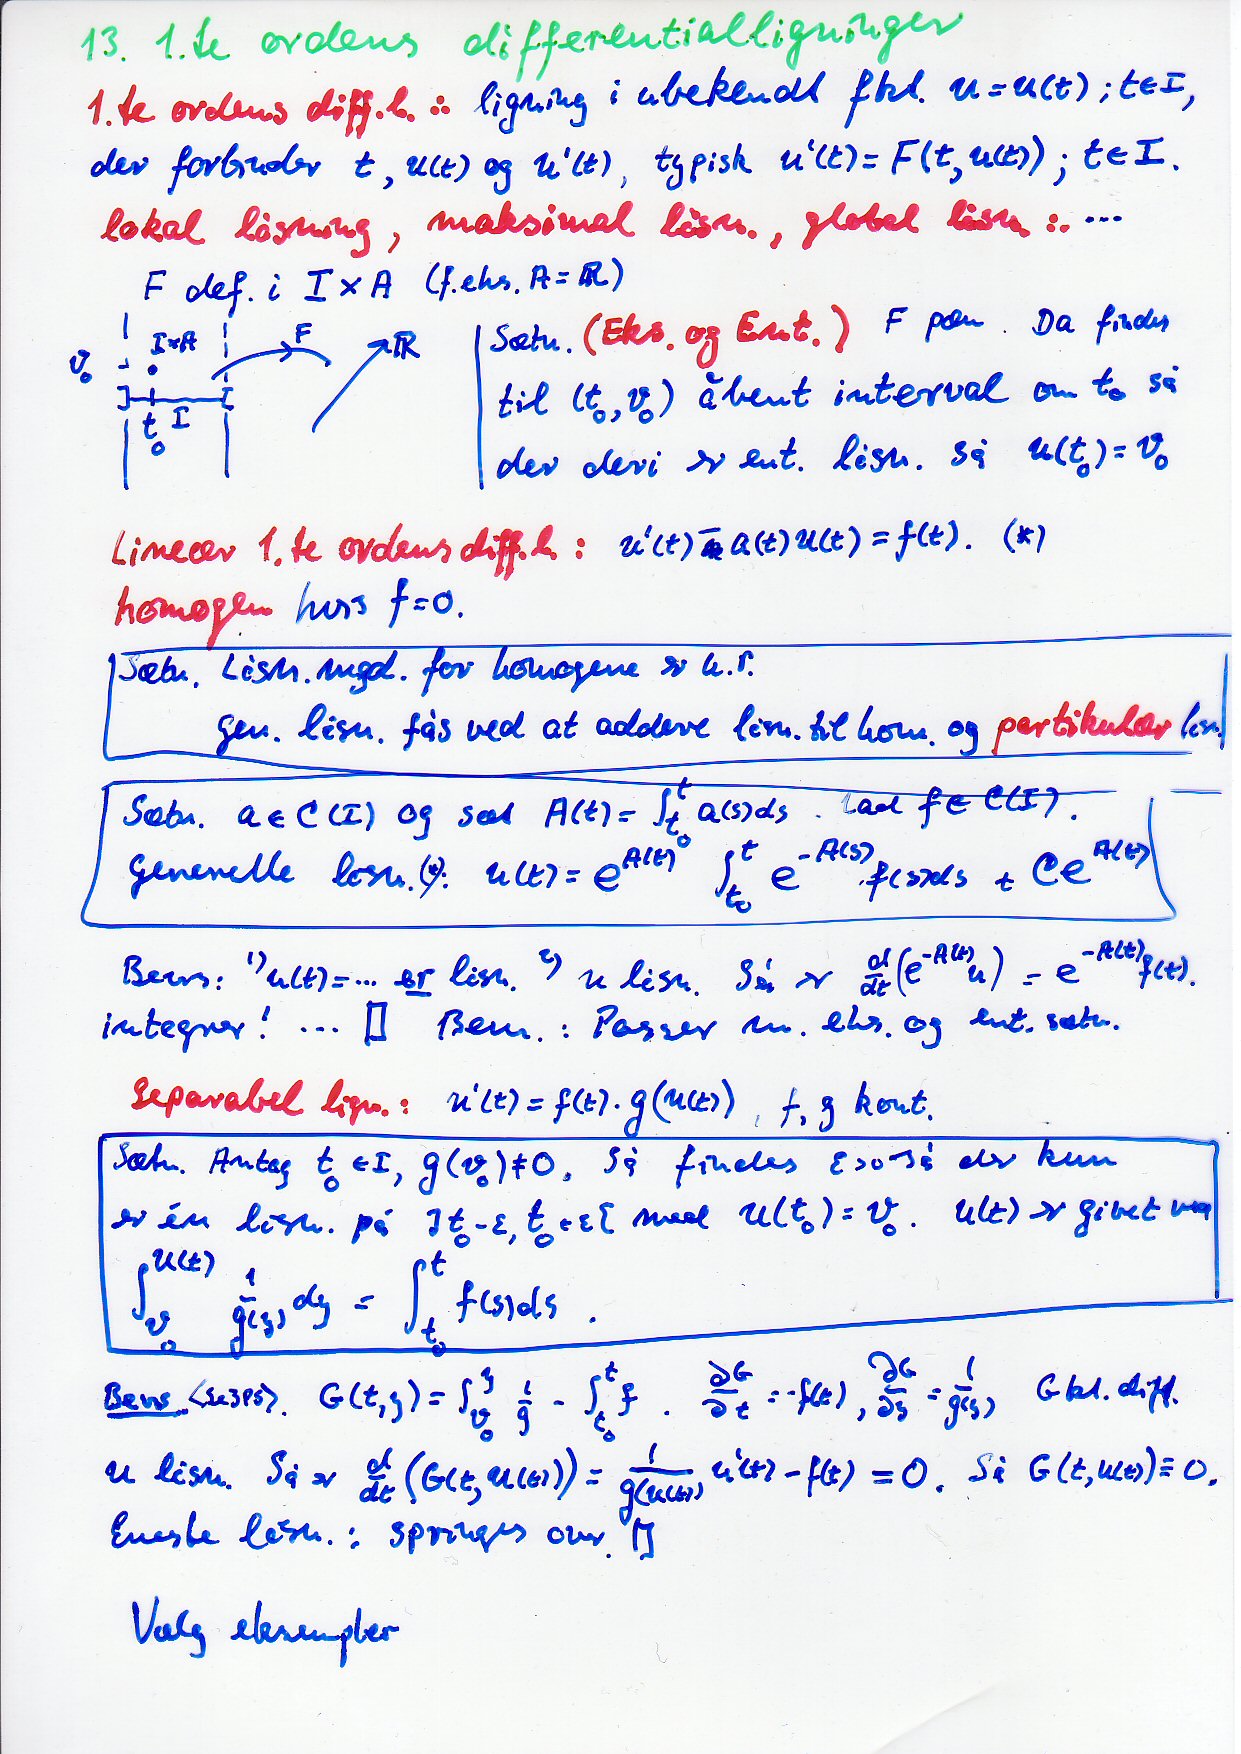 13. 1.te ordens differentialligninger
1.te ordens diff.l. :: ligning i ubekendt fkt. u = u(t) ; t ∈ I,
der forbinder t, u(t) og u'(t), typisk u'(t) = F(t, u(t)) ; t ∈ I.
lokal løsning, maksimal løsn., global løsn :. ...
F def. i I × A (f.eks. A = ℝ)
v₀ I×A F ℝ
t₀ I
Sætn. (Eks. og Ent.) F pæn. Da findes
til (t₀, v₀) åbent interval om t₀ så
der deri er ent. løsn. så u(t₀) = v₀
Lineær 1.te ordens diff.l. : u'(t) - a(t) u(t) = f(t). (*)
homogen hvis f = 0.
Sætn. Løsn.mgd. for homogene er u.r.
gen. løsn. fås ved at addere løsn. til hom. og partikulær løsn.
Sætn. a ∈ C(I) og sæt A(t) = ∫_{t₀}^{t} a(s)ds . Lad f ∈ C(I).
Generelle løsn.(*): u(t) = e^{A(t)} ∫_{t₀}^{t} e^{-A(s)} f(s)ds + C e^{A(t)}
Bevis: 1) u(t) = ... er løsn. 2) u løsn. Så er d/dt (e^{-A(t)} u) = e^{-A(t)} f(t).
integrer! ... [] Bem. : Passer m. eks. og ent. sætn.
Separabel lign. : u'(t) = f(t) · g(u(t)) , f, g kont.
Sætn. Antag t₀ ∈ I, g(v₀) ≠ 0. Så findes ε > 0 så der kun
er én løsn. på ]t₀-ε, t₀+ε[ med u(t₀) = v₀. u(t) er givet ved
∫_{v₀}^{u(t)} 1/g(y) dy = ∫_{t₀}^{t} f(s)ds .
Bevis . G(t,y) = ∫_{v₀}^{y} 1/g - ∫_{t₀}^{t} f . ∂G/∂t = -f(t), ∂G/∂y = 1/g(y) G kt. diff.
u løsn. Så er d/dt (G(t, u(t))) = 1/g(u(t)) u'(t) - f(t) = 0. Så G(t, u(t)) ≡ 0.
Eneste løsn. : springes over. []
Vælg eksempler